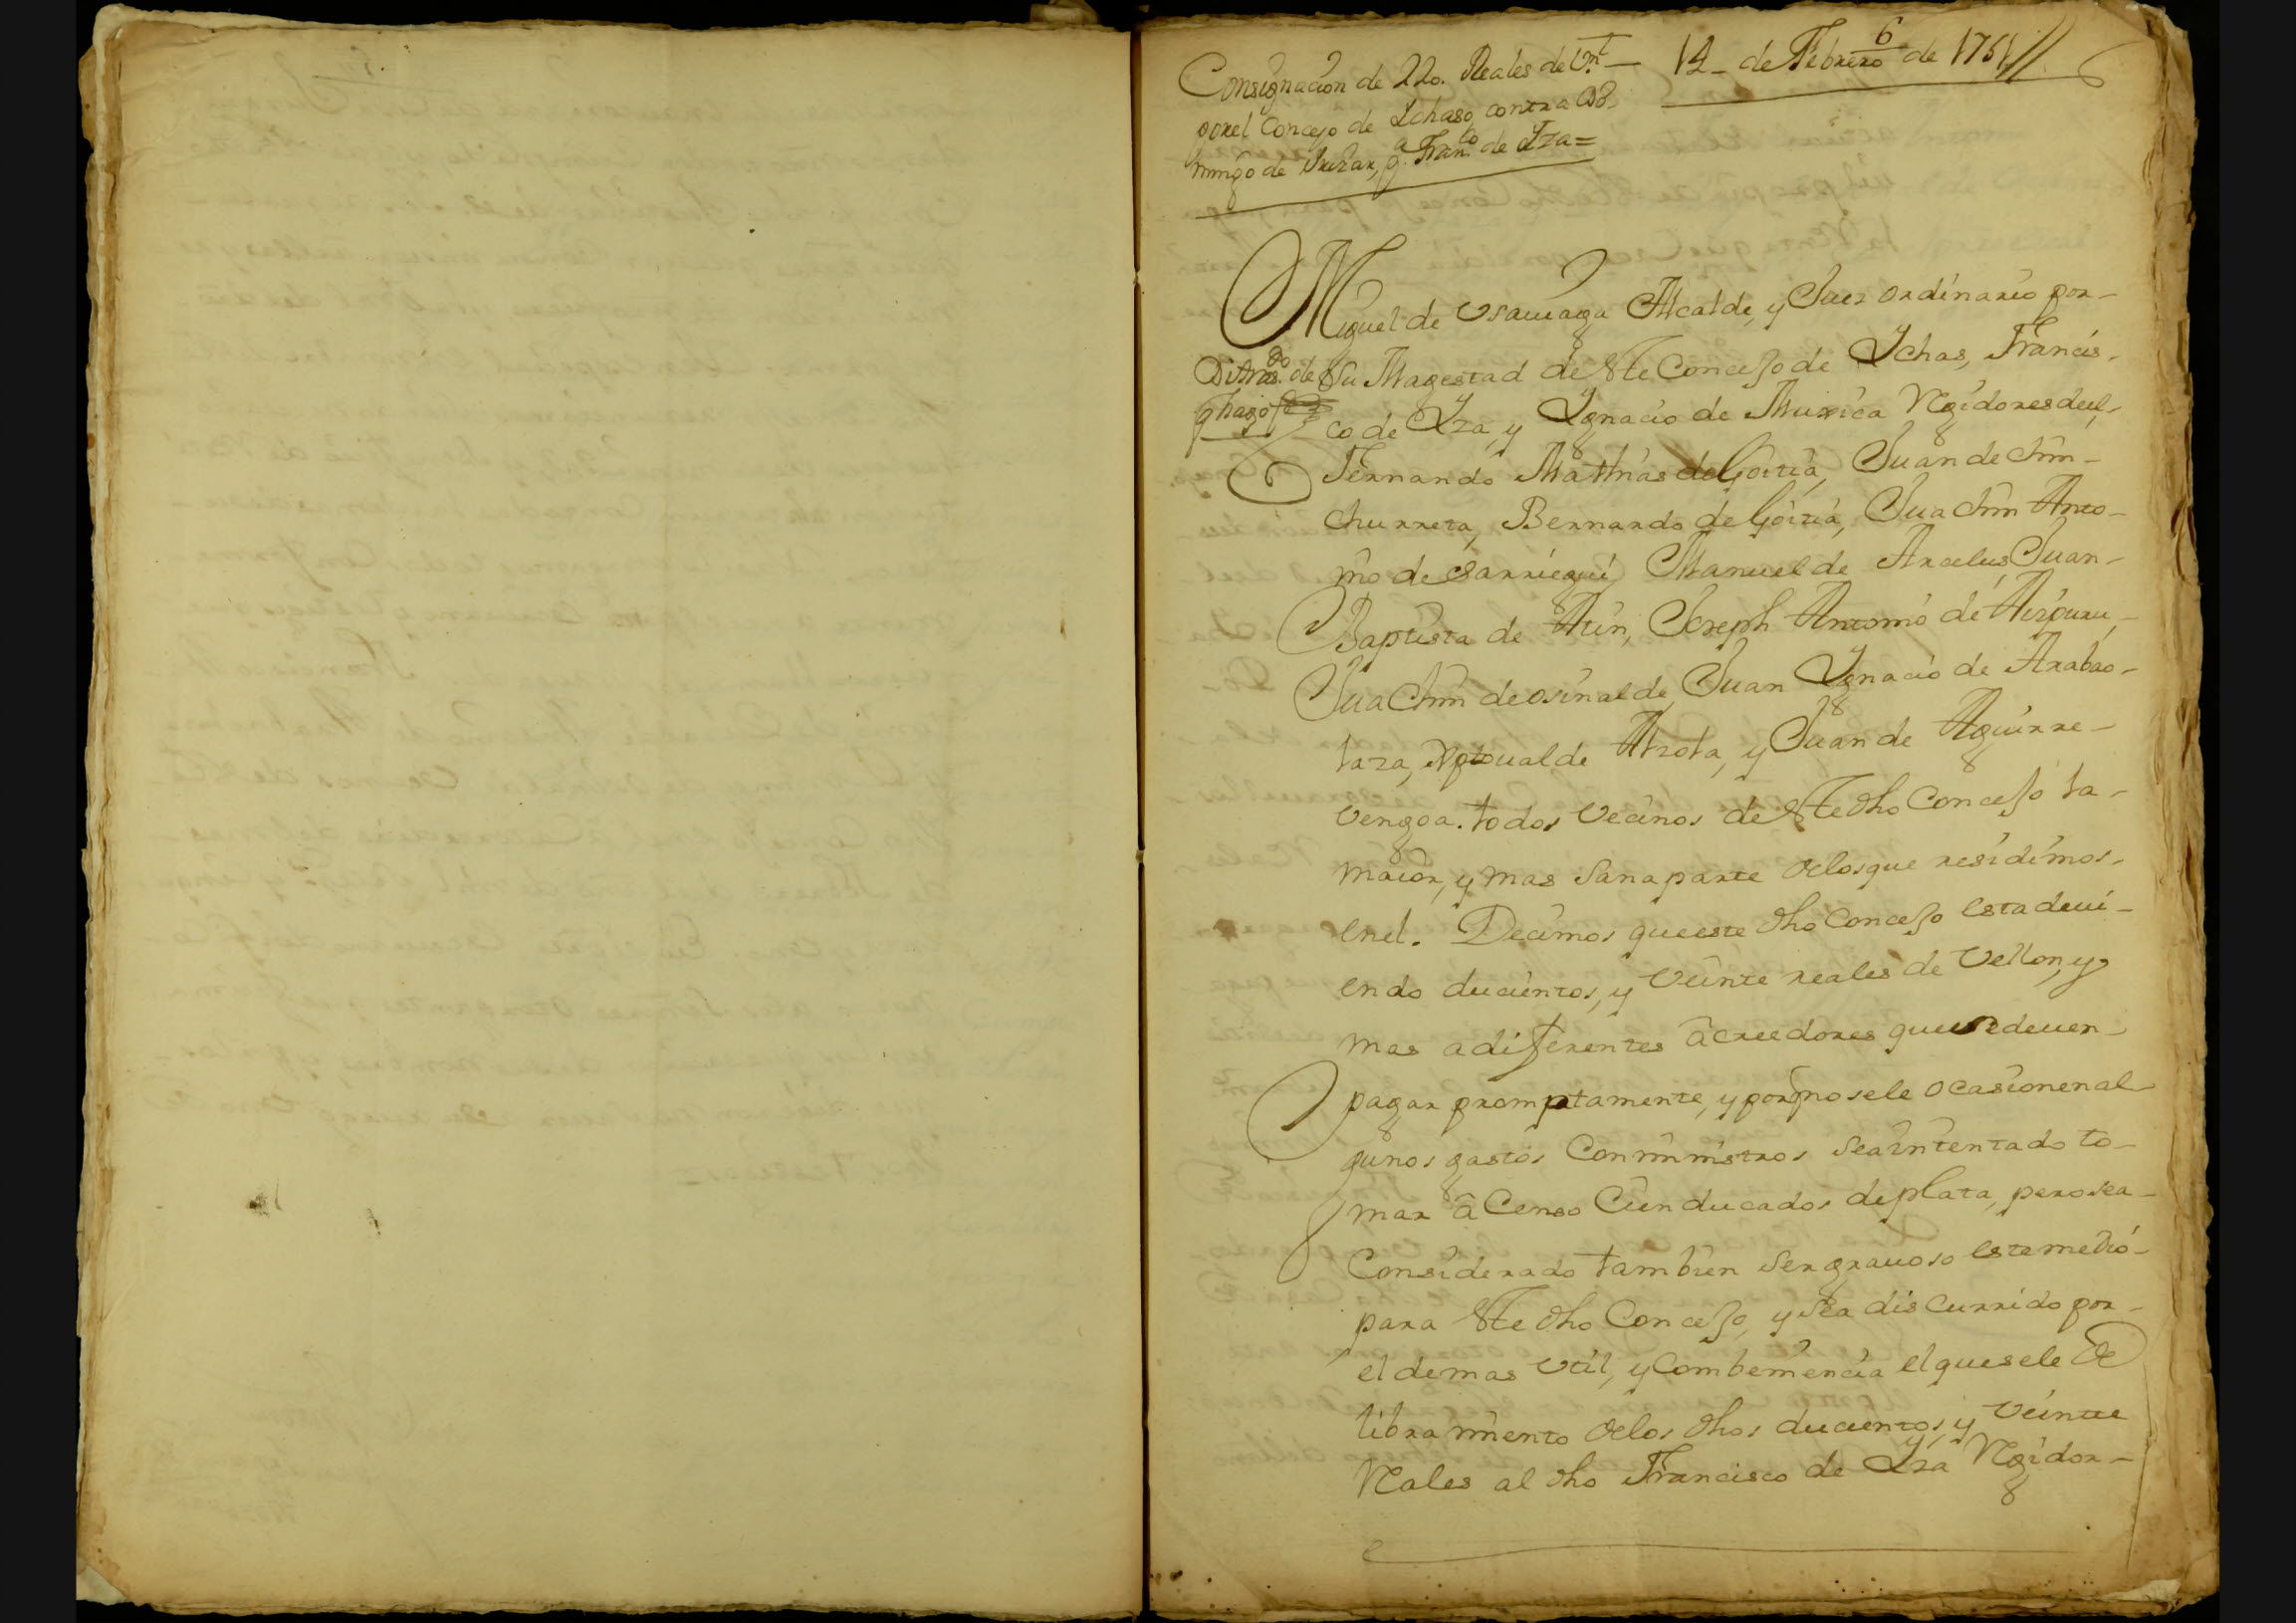 6
Consignacion de 220. Reales de Vn. — 12 de Febrero de 1761
por el Concejo de Ychaso, contra Do-
mingo de Yrizar, pa. Franco. de Yza =
Miguel de Vsauiaga Alcalde, y Juez ordinario por-
Su Magestad de este Concejo de Ychas, Francis-
co de Yza, y Ygnacio de Muxica Regidores deel,
Fernando Mathias de Goitia, Juan de Chin-
churreta, Bernardo de Goitia, Juachin Anto-
nio de Sarriegui, Manuel de Arcelus, Juan-
Baptista de Aun, Joseph Antonio de Aizpuru,
Juachin de osinalde, Juan Ygnacio de Arabao-
laza, de Atola, y Juan de Aguirre-
vengoa. todos Vecinos de este dho Concejo la-
maior, y mas Sana parte de los que residimos-
en el. Decimos que este dho Concejo esta deui-
endo ducientos, y Veinte reales de Vellon, y
mas a diferentes acreedores que se deuen-
pagar promptamente, y porq no sele ocasionen al-
gunos gastos Con ministros sea intentado to-
mar â Censo Cien ducados de plata, pero sea-
Considerado tambien ser grauoso este medio-
para este dho Concejo, y sea discurrido por-
el de mas Vtil, y Combeniencia el que sele de
libramiento de los dhos ducientos, y Veinte
Reales al dho Francisco de Yza Regidor-